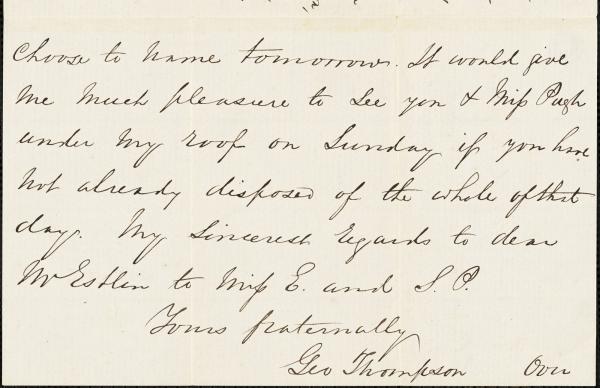 choose to name tomorrow. It would give
me much pleasure to see you & Miss Pugh
under my roof on Sunday if you have
not already disposed of the whole of that
day. My sincerest regards to dear
Mr Estlin to Miss E. and S. P.
Yours fraternally
Geo Thompson Over